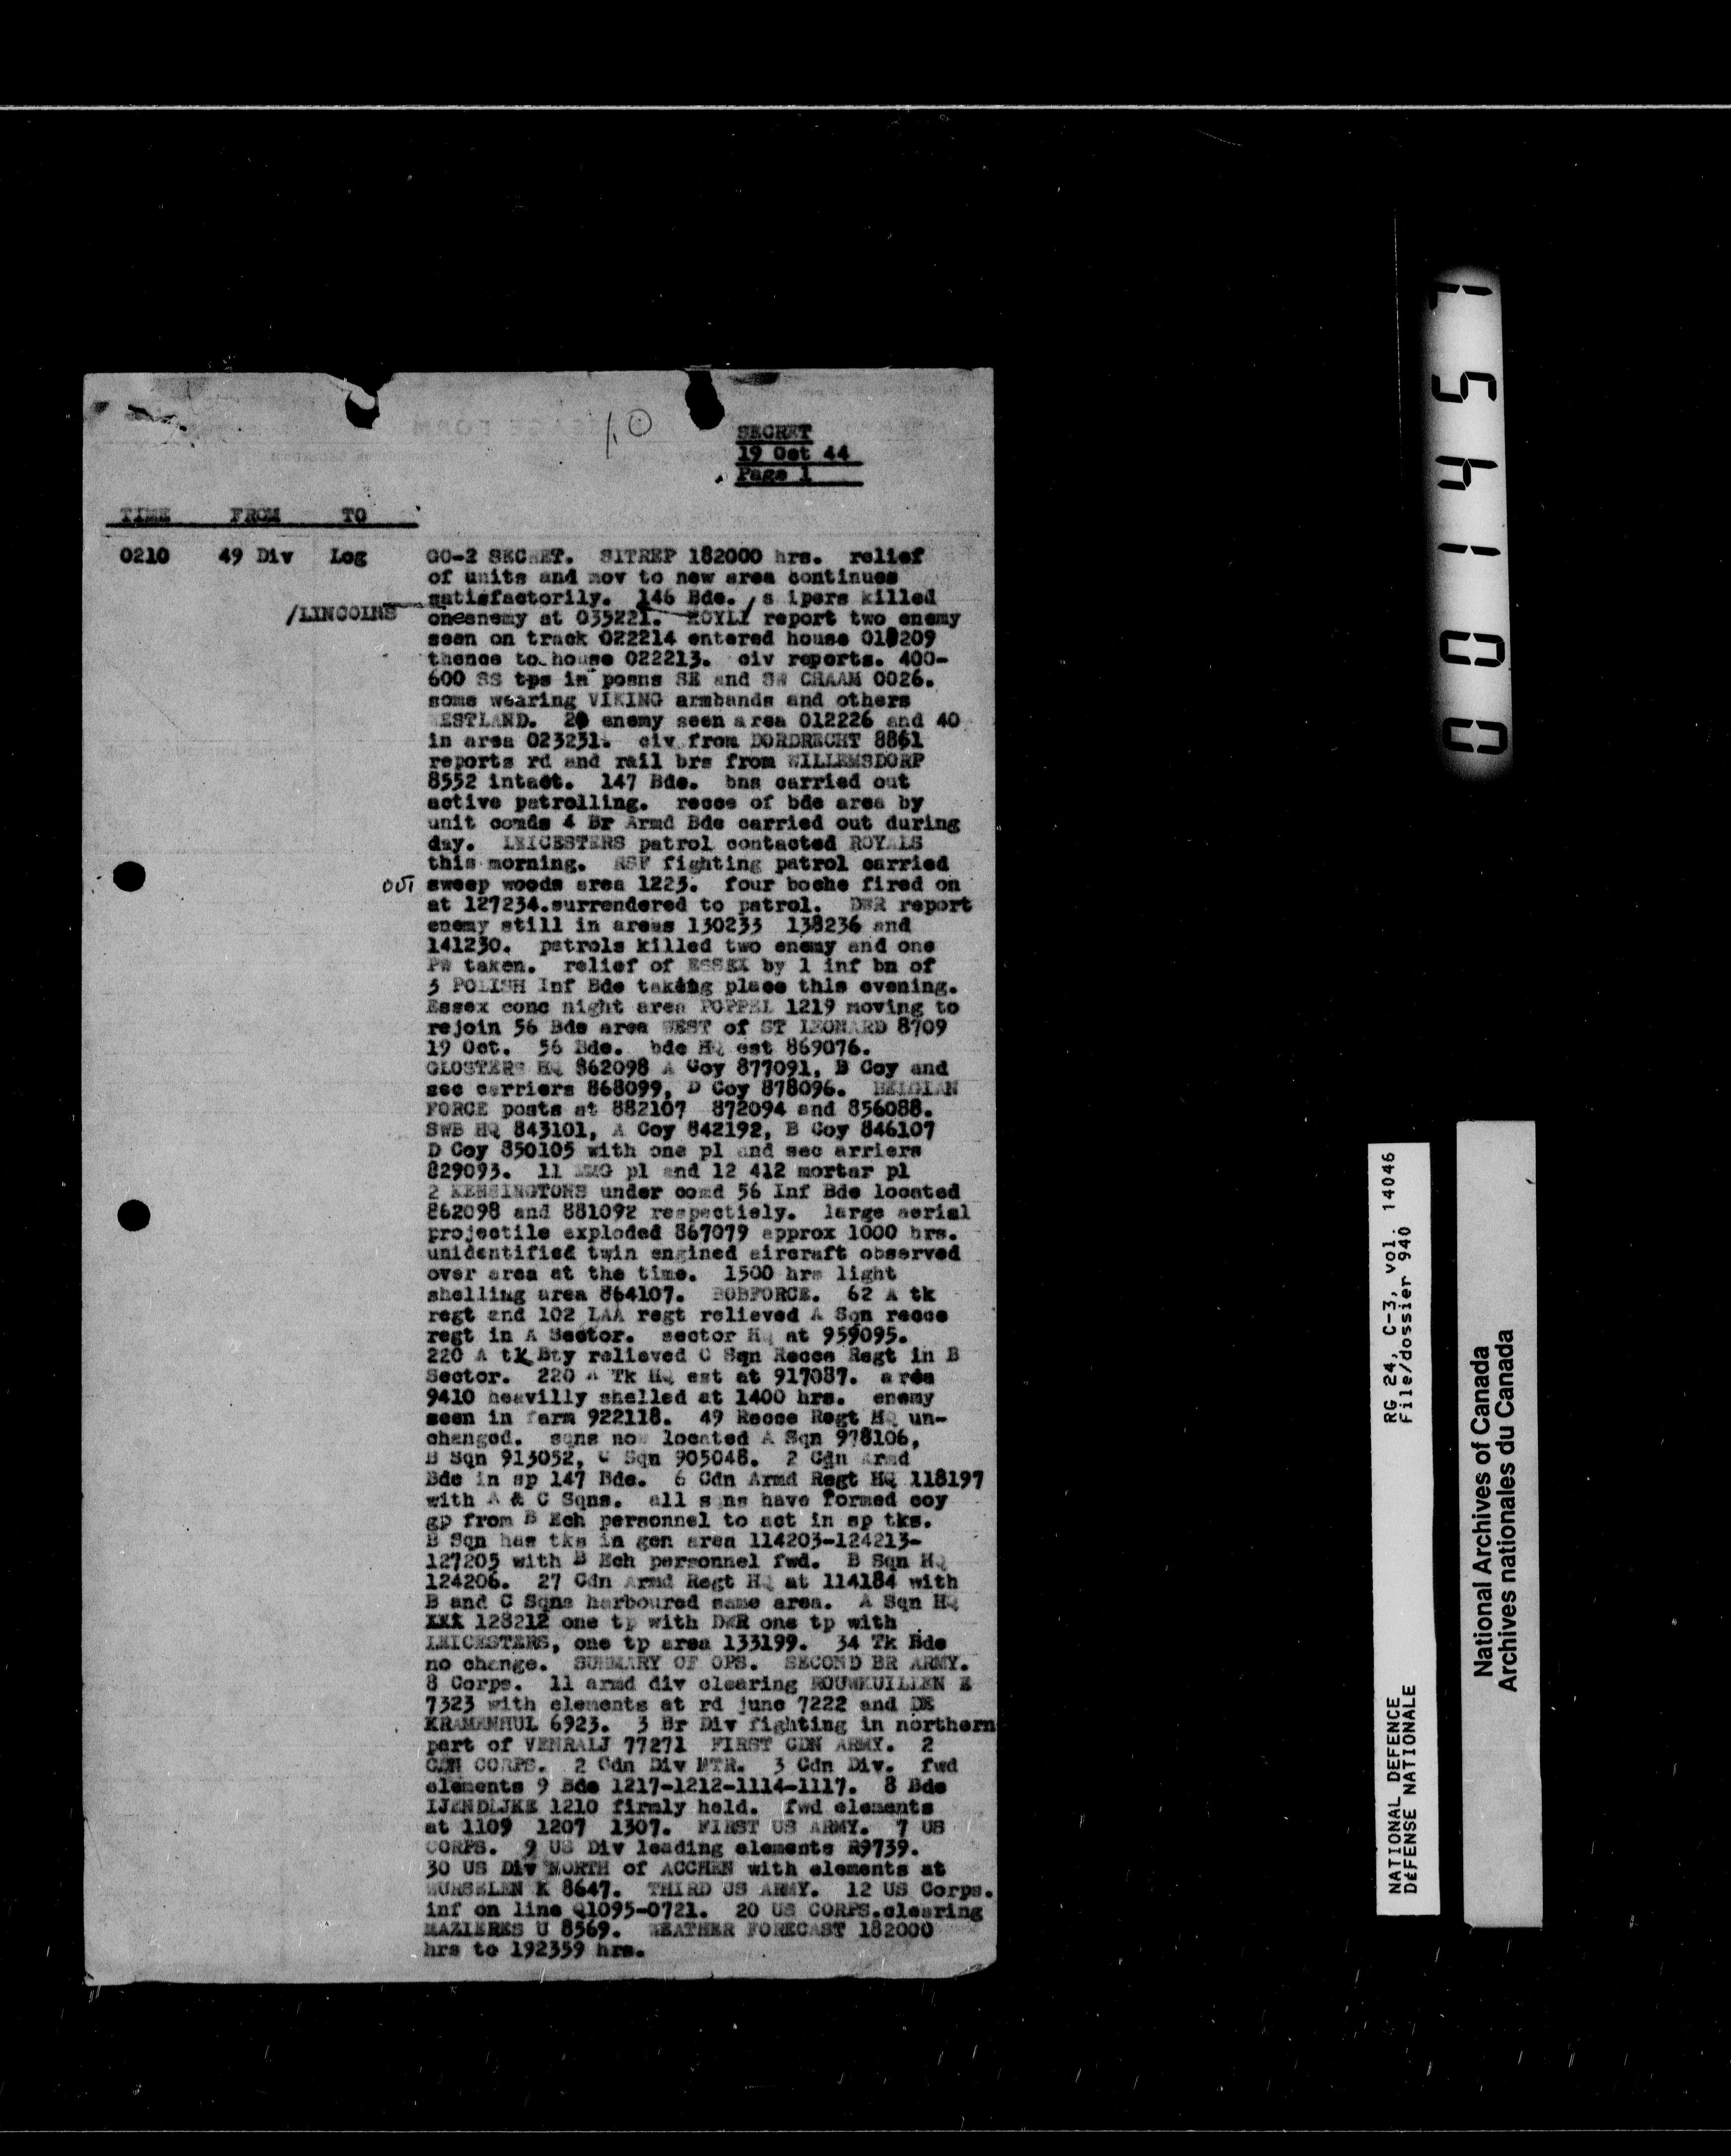 10
SECRET
19 Oct 44
Page 1
TIME FROM TO
0210 49 Div Log GO-2 SECRET. SITREP 182000 hrs. relief
of units and mov to new area continues
satisfactorily. 146 Bde. / s ipers killed
/LINCOLNS oneenemy at 035221. KOYLI report two enemy
seen on track 022214 entered house 018209
thence to house 022213. civ reports. 400-
600 SS tps in posns SE and SW CHAAM 0026.
some wearing VIKING armbands and others
WESTLAND. 20 enemy seen area 012226 and 40
in area 023231. civ from DORDRECHT 8861
reports rd and rail brs from WILLEMSDORP
8552 intact. 147 Bde. bns carried out
active patrolling. recce of bde area by
unit comds 4 Br Armd Bde carried out during
day. LEICESTERS patrol contacted ROYALS
this morning. RSF fighting patrol carried
out sweep woods area 1223. four boche fired on
at 127234.surrendered to patrol. DWR report
enemy still in areas 130233 138236 and
141230. patrols killed two enemy and one
PW taken. relief of ESSEX by 1 inf bn of
3 POLISH Inf Bde taking place this evening.
Essex conc night area POPPEL 1219 moving to
rejoin 56 Bde area WEST of ST LEONARD 8709
19 Oct. 56 Bde. bde HQ est 869076.
GLOSTERS HQ 862098 A Coy 877091, B Coy and
sec carriers 868099, D Coy 878096. BELGIAN
FORCE posts at 882107 872094 and 856088.
SWB HQ 843101, A Coy 842192, B Coy 846107
D Coy 850105 with one pl and sec arriers
829093. 11 MMG pl and 12 412 mortar pl
2 KENSINGTONS under comd 56 Inf Bde located
862098 and 881092 respectiely. large aerial
projectile exploded 867079 approx 1000 hrs.
unidentified twin engined aircraft observed
over area at the time. 1500 hrs light
shelling area 864107. BOBFORCE. 62 A tk
regt and 102 LAA regt relieved A Sqn recce
regt in A Sector. sector HQ at 959095.
220 A tk Bty relieved C Sqn Recce Regt in B
Sector. 220 A Tk HQ est at 917087. area
9410 heavilly shelled at 1400 hrs. enemy
seen in farm 922118. 49 Recce Regt HQ un-
changed. sqns now located A Sqn 978106,
B Sqn 913052, C Sqn 905048. 2 Cdn Armd
Bde in sp 147 Bde. 6 Cdn Armd Regt HQ 118197
with A & C Sqns. all sqns have formed coy
gp from B Ech personnel to act in sp tks.
B Sqn has tks in gen area 114203-124213-
127205 with B Ech personnel fwd. B Sqn HQ
124206. 27 Cdn Armd Regt HQ at 114184 with
B and C Sqns harboured same area. A Sqn HQ
XXX 128212 one tp with DWR one tp with
LEICESTERS, one tp area 133199. 34 Tk Bde
no change. SUMMARY OF OPS. SECOND BR ARMY.
8 Corps. 11 armd div clearing ROUWKUILLEN E
7323 with elements at rd junc 7222 and DE
KRAMENHUL 6923. 3 Br Div fighting in northern
part of VENRALJ 77271 FIRST CDN ARMY. 2
CDN CORPS. 2 Cdn Div NTR. 3 Cdn Div. fwd
elements 9 Bde 1217-1212-1114-1117. 8 Bde
IJENDIJKE 1210 firmly held. fwd elements
at 1109 1207 1307. FIRST US ARMY. 7 US
CORPS. 9 US Div leading elements R9739.
30 US Div NORTH of ACCHEN with elements at
WURSELEN K 8647. THIRD US ARMY. 12 US Corps.
inf on line Q1095-0721. 20 US CORPS.clearing
MAZIERES U 8569. WEATHER FORECAST 182000
hrs to 192359 hrs.
001457
RG 24, C-3, vol. 14046
File/dossier 940
NATIONAL DEFENCE
DÉFENSE NATIONALE
National Archives of Canada
Archives nationales du Canada